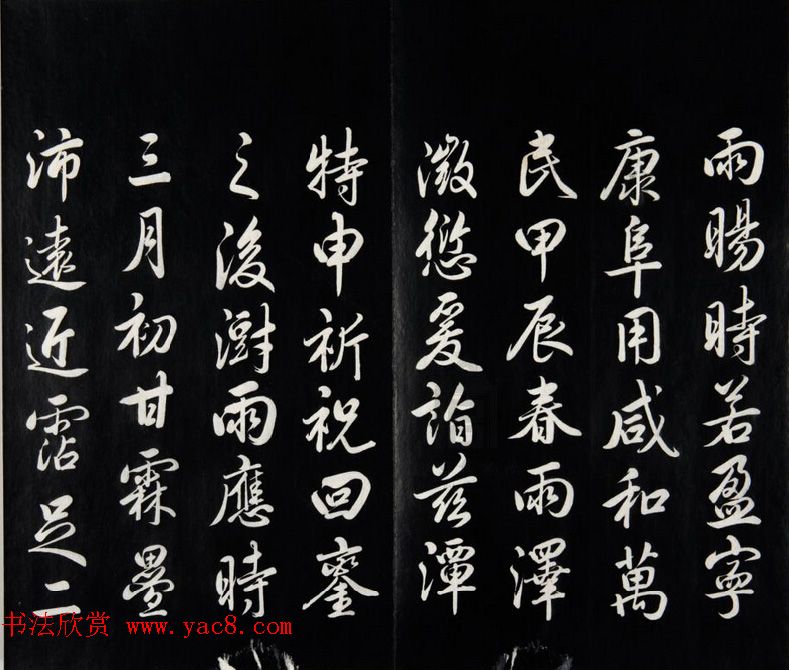 雨暘時若盈寧
康阜用咸和萬
民甲辰春雨澤
微愆爰詣茲潭
特申祈祝回鑾
之後澍雨應時
三月初甘霖疊
沛遠近霑足二
书法欣赏 www.yac8.com